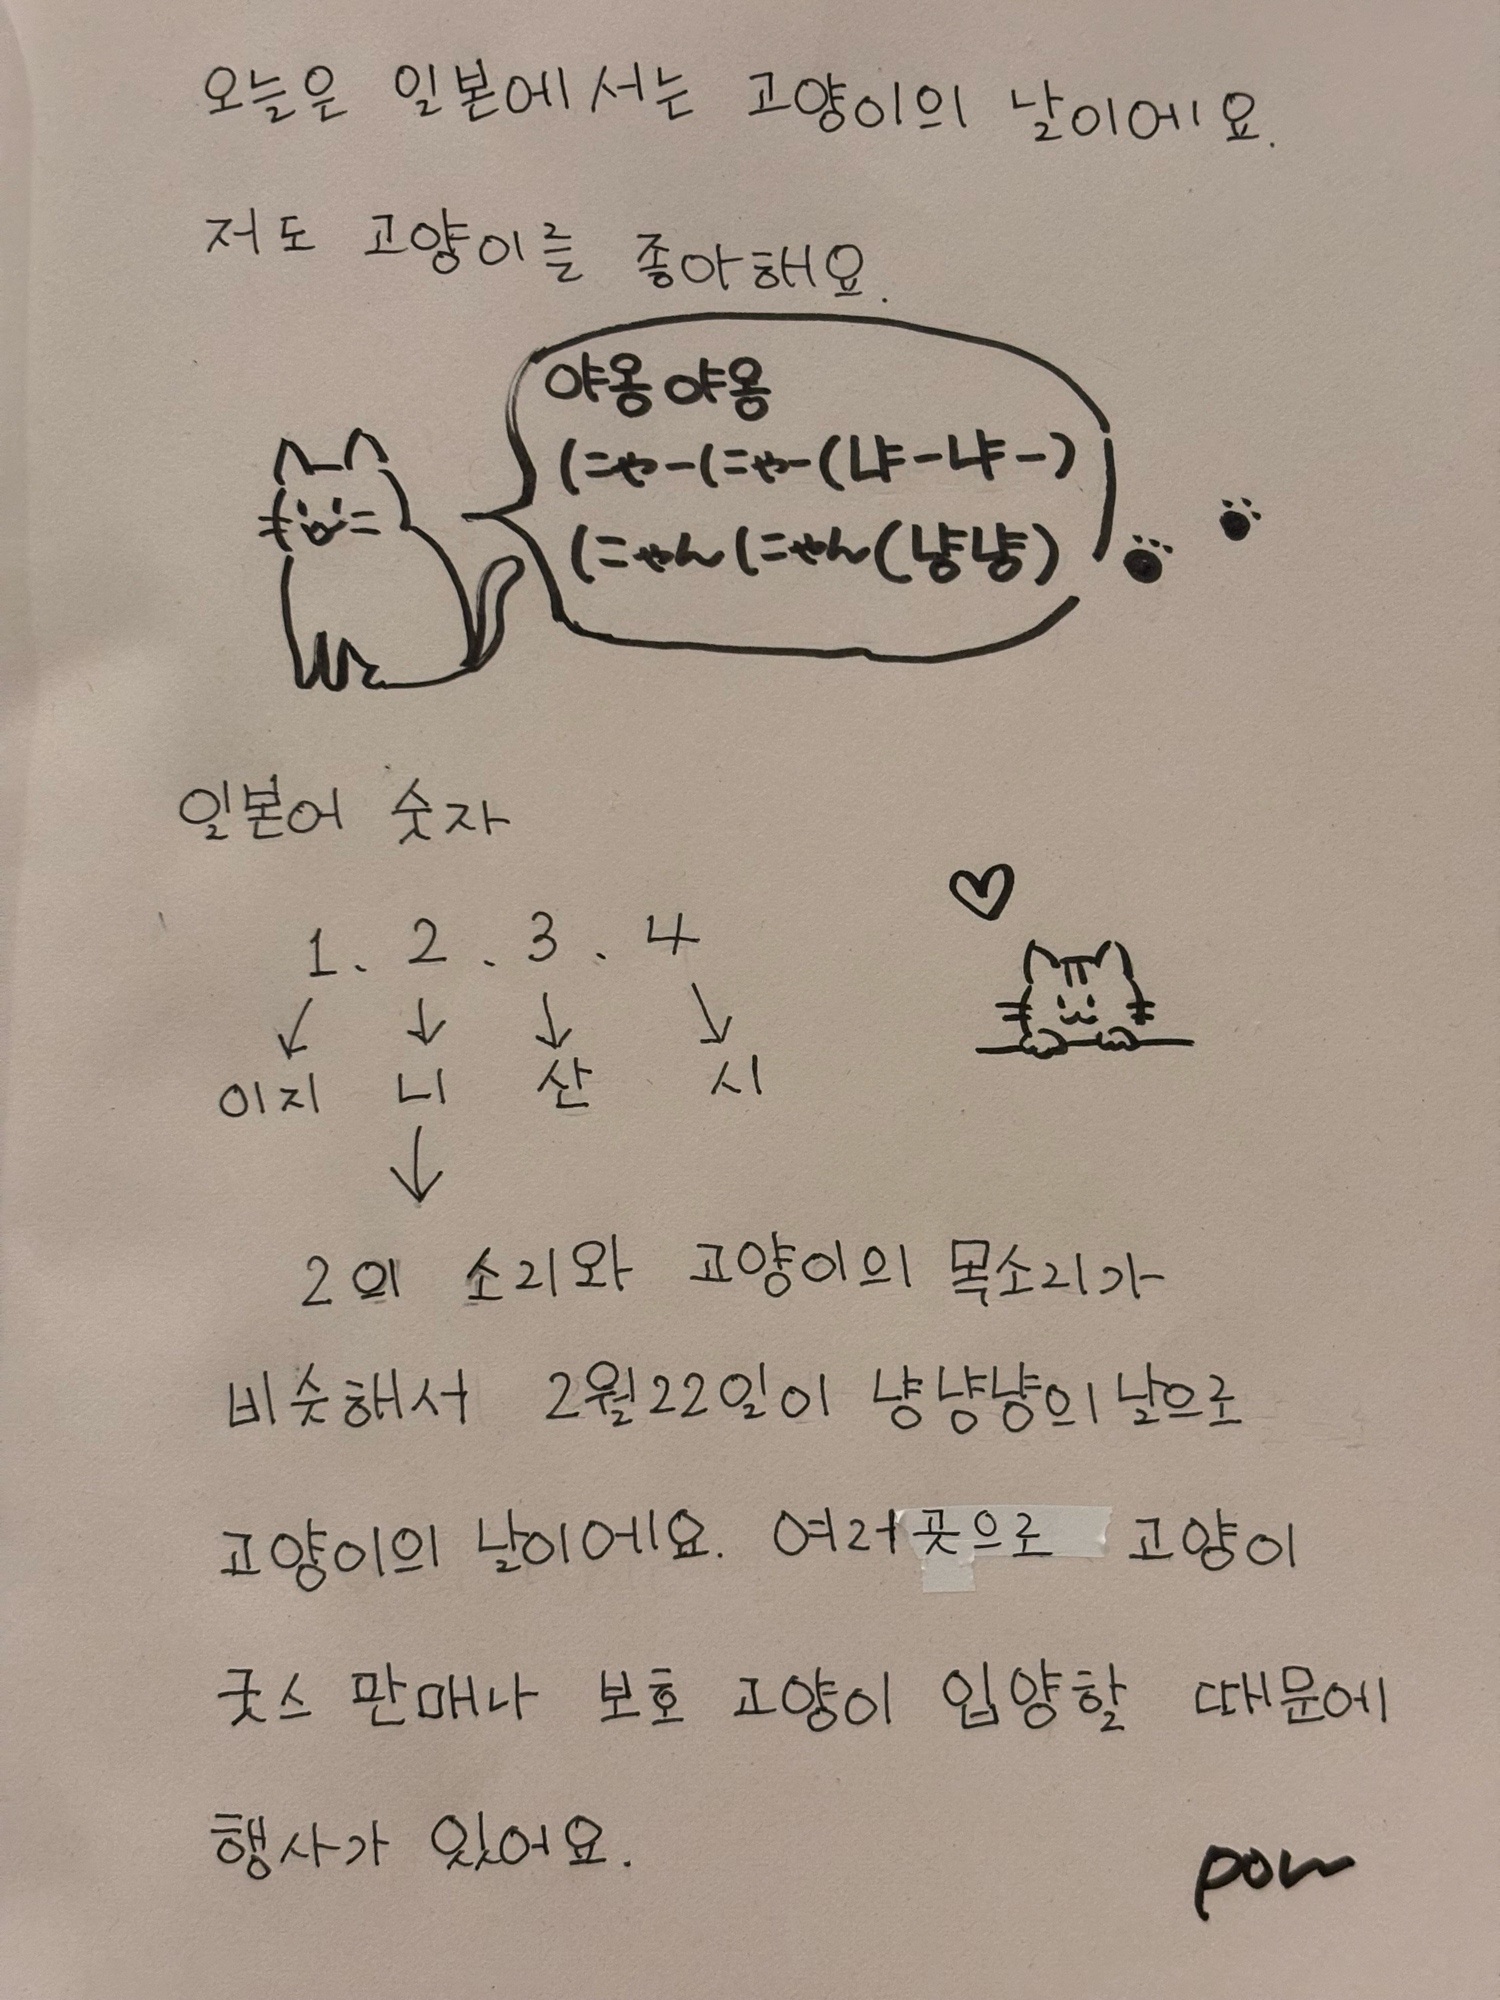 오늘은 일본에서는 고양이의 날이에요.
저도 고양이를 좋아해요.
야옹 야옹
にゃーにゃー(냐-냐-)
にゃんにゃん(냥냥)
일본어 숫자
1. 2. 3. 4
이지 니 산 시
2의 소리와 고양이의 목소리가
비슷해서 2월22일이 냥냥냥의 날으로
고양이의 날이에요. 여러곳으로 고양이
굿스 판매나 보호 고양이 입양할 때문에
행사가 있어요.